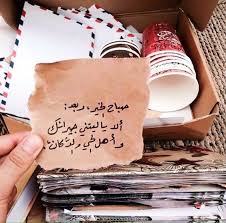 صباح الخير، وبعد:
ألا يا ليتني جيرانك
وأهل الحي والدكان